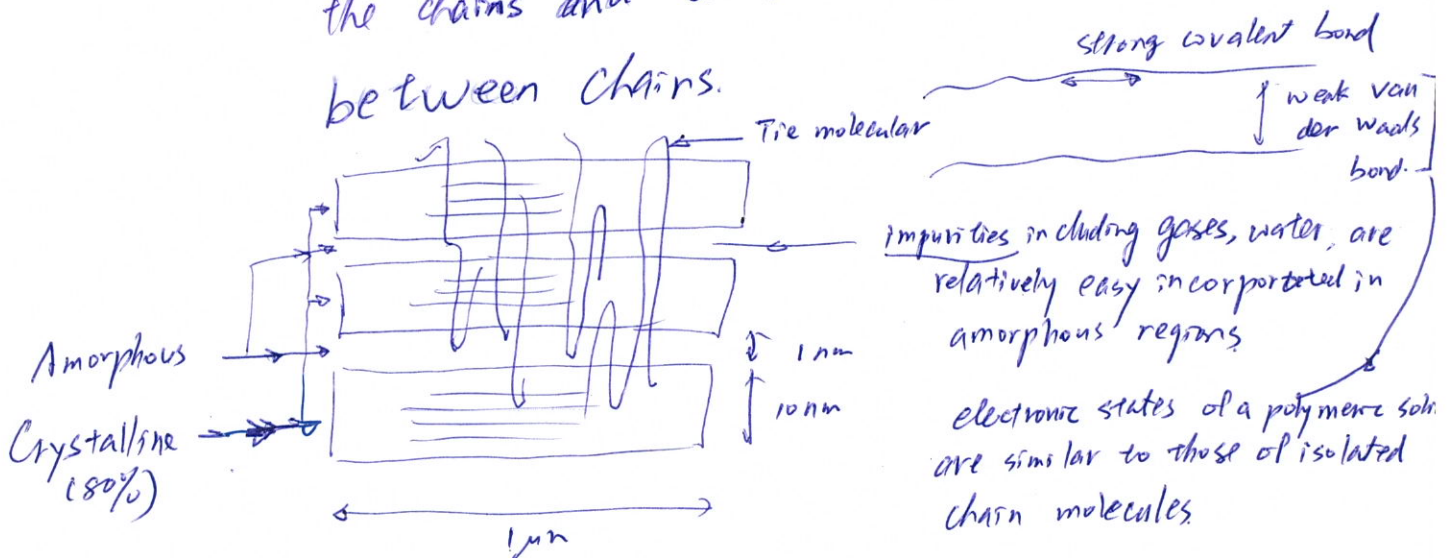 the chains and
between chains.
strong covalent bond
weak van
der Waals
bond.
Tie molecular
impurities including gases, water, are
relatively easy incorporated in
amorphous regions.
Amorphous
1 nm
10 nm
Crystalline
(80%)
electronic states of a polymeric soli
are similar to those of isolated
chain molecules.
1 μm